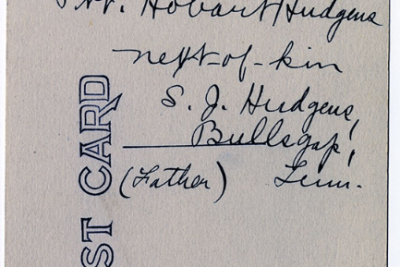 Pvt. Hobart Hudgens
next-of-kin
S. J. Hudgens,
Bullsgap,
(Father) Tenn.
ST CARD